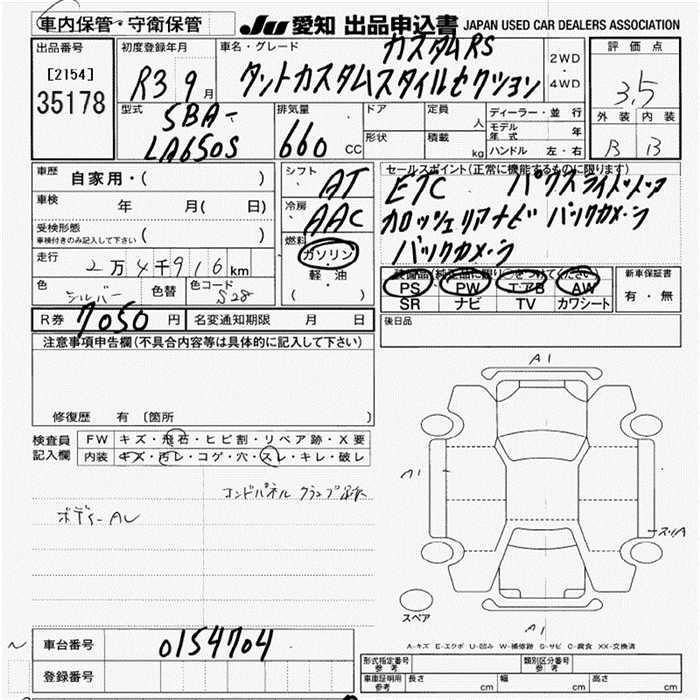 車内保管・守衛保管
JU 愛知 出品申込書 JAPAN USED CAR DEALERS ASSOCIATION
出品番号
[2154]
35178
初度登録年月
R3 9月
車名・グレード
カスタムRS
タントカスタムスタイルセクション
2WD
・
4WD
評価点
3.5
外装 内装
B B
型式
5BA-
LA650S
排気量
660 CC
ドア
形状
定員 人
積載 kg
ディーラー・並行
モデル年式 年
ハンドル 左・右
車歴
自家用・( )
車検 年 月( 日)
受検形態
車検付きのみ記入して下さい ( )
走行
2万4千916km
色 シルバー 色替 色コード S28
シフト AT
冷房 AAC
燃料
ガソリン
・
軽油
( )
セールスポイント(正常に機能するものに限ります)
ETC
カロッツェリアナビ バックカメラ
バックカメラ
装備品(純正品に限り○をつけてください)
PS PW エアB AW
SR ナビ TV カワシート
新車保証書
有・無
後日品
R券 7050円 名変通知期限 月 日
注意事項申告欄(不具合内容等は具体的に記入して下さい)
修復歴 有〔箇所 〕
検査員記入欄
FW キズ・飛石・ヒビ割・リペア跡・X要
内装 キズ・汚レ・コゲ・穴・スレ・キレ・破レ
コンドパネル クランプ跡
ボディーAU
A1
A1
A1
スペア
A-キズ E-エクボ U-凹み W-補修跡 S-サビ C-腐食 XX-交換済
車台番号 0154704
登録番号
形式指定番号 参考
類別区分番号 参考
車庫証明用 参考 長さ cm 幅 cm 高さ cm